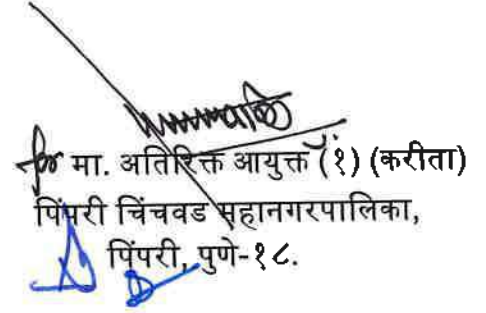 for मा. अतिरिक्त आयुक्त (१) (करीता)
पिंपरी चिंचवड महानगरपालिका,
पिंपरी, पुणे-१८.